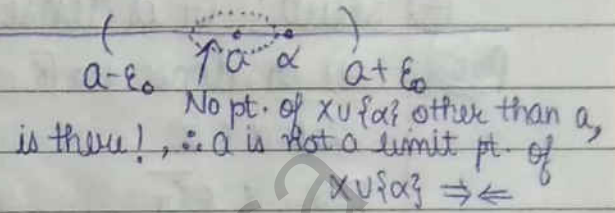 ( a α )
a-ε₀ a+ε₀
No pt. of X∪{α} other than a,
is there!, ∴ a is not a limit pt. of
X∪{α} ⇒⇐